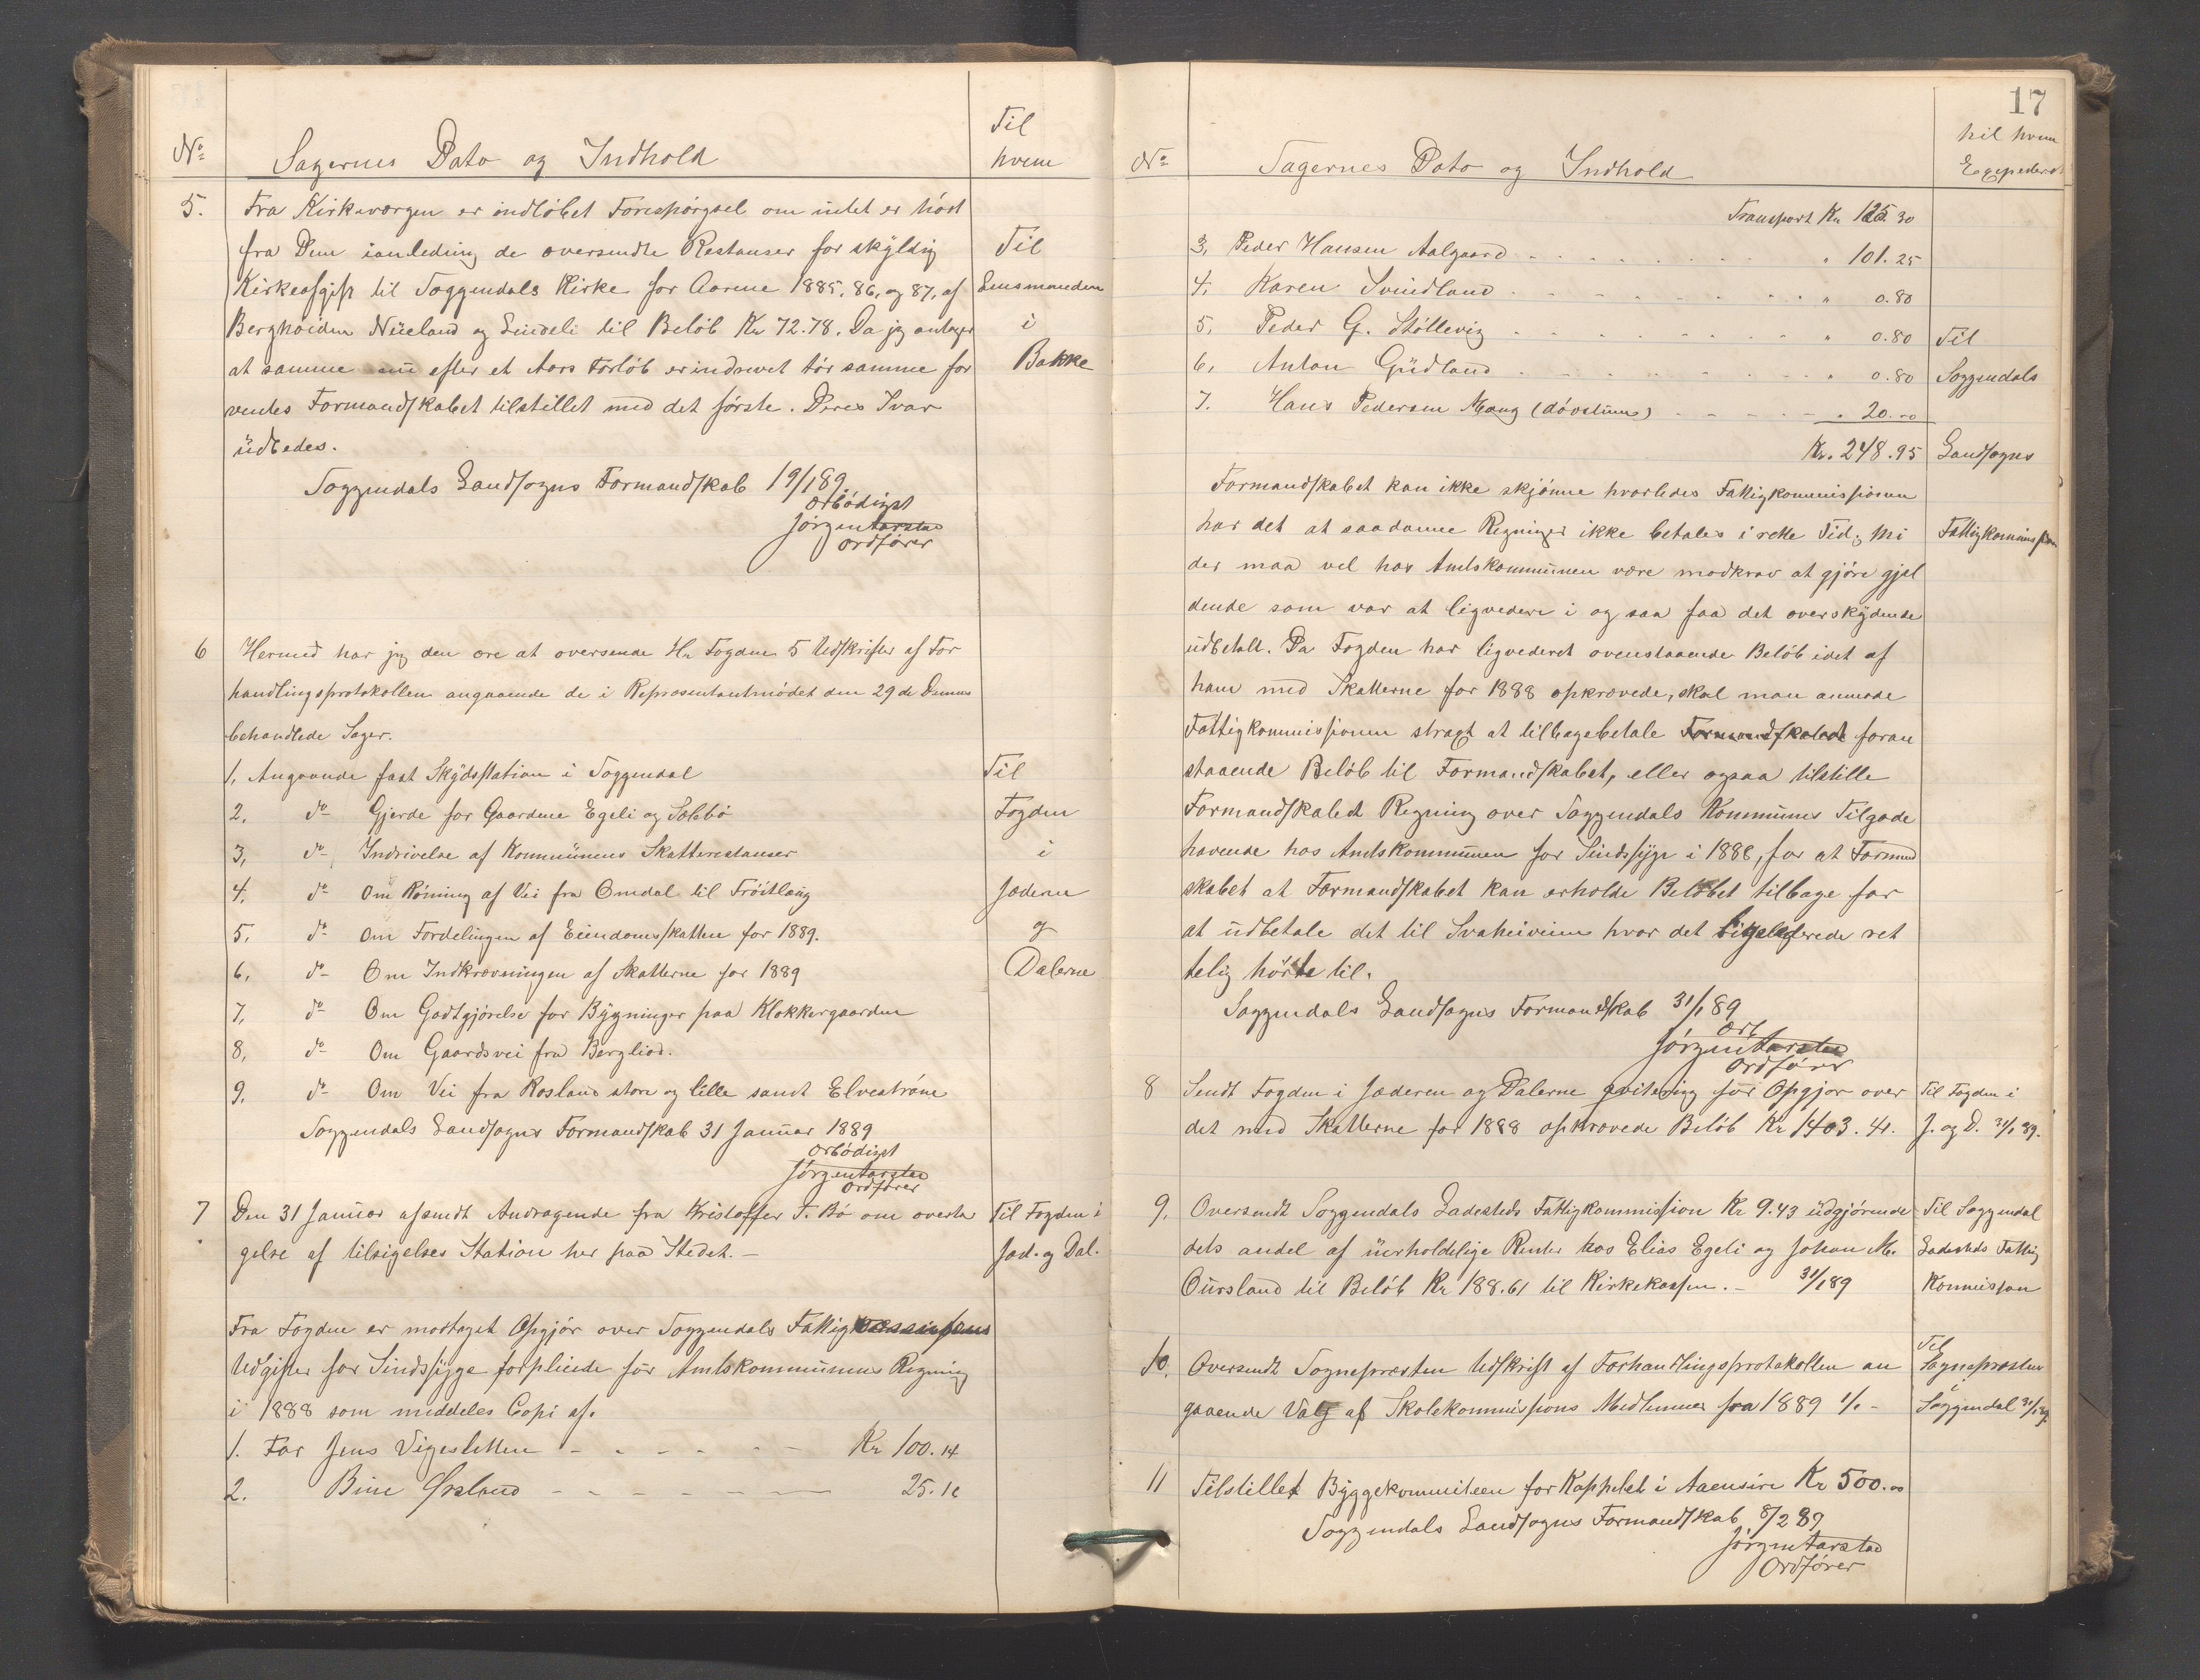 No Sagernes Dato og Indhold Til hvem
5. Fra Kirkeværgen er indløbet Forespørgsel om intet er hørt
fra Dem ianledning de oversendte Restanser for skyldig Til
Kirkeafgift til Soggendals Kirke for Aarene 1885, 86, og 87, af Lensmanden
Berghoiden Nueland og Lindeli til Beløb Kr 72.78. Da jeg antager i
at samme nu efter et Aars Forløb er indrevet tør samme for Bakke
ventes Formandskabet tilstillet med det første. Deres Svar
udbedes.
Soggendals Landsogns Formandskab 19/1 89.
Ærbødigst
Jørgen Aarstad
Ordfører
6 Hermed har jeg den ære at oversende Hr Fogden 5 Udskrifter af For
handlingsprotokollen angaaende de i Repræsentantmødet den 29de Dennes
behandlede Sager.
1, Angaaende fast Skydsstation i Soggendal Til
2, do Gjerde for Gaardene Egeli og Solbø Fogden
3, do Indrivelse af Kommunens Skatterestanser i
4, do Om Røming af Vei fra Omdal til Frøitlaug Jæderen
5, do Om Fordelingen af Eiendomsskatten for 1889. og
6, do Om Indkrævningen af Skatterne for 1889 Dalerne
7, do Om Godtgjørelse for Bygninger paa Klokkergaarden
8, do Om Gaardsvei fra Bergliod.
9, do Om Vei fra Rosland store og lille samt Elvestrøne
Soggendals Landsogns Formandskab 31 Januar 1889
Ærbødigst
Jørgen Aarstad
Ordfører
7 Den 31 Januar afsendt Andragende fra Kristoffer T. Bø om overta Til Fogden i
gelse af tilsigelses Station her paa Stedet. – Jæd. og Dal.
Fra Fogden er modtaget Opgjør over Soggendals Fattig
Udgifter for Sindssyge forpleiede for Amtskommunens Regning
i 1888 som meddeles Copi af.
1. For Jens Vigesletten – – – – – Kr 100.14
2. Bine Ørsland – – – – – 25.16
17
No Sagernes Dato og Indhold til hvem Expederet
Transport Kr 125.30
3, Peder Hansen Aalgaard " 101.25
4, Karen Svindland " 0.80
5, Peder G. Støllevig " 0.80 Til
6, Anton Gudland " 0.80 Soggendals
7. Hans Pedersen Moug (døvstum) " 20.00
Kr. 248.95 Landsogns
Formandskabet kan ikke skjønne hvorledes Fattigkommissionen
har det at saadanne Regninger ikke betales i rette Tid; Mi Fattigkommission
der maa vel hos Amtskommunen være modkrav at gjøre gjel
dende som var at ligvedere i og saa faa det overskydende
udbetalt. Da Fogden har ligvederet ovenstaaende Beløb idet af
ham med Skatterne for 1888 opkrævede, skal man anmode
Fattigkommissionen stragt at tilbagebetale Formandskabet foran
staaende Beløb til Formandskabet, eller ogsaa tilstille
Formandskabet Regning over Soggendals Kommunes Tilgode
havende hos Amtskommunen for Sindssyge i 1888, for at Formand
skabet at Formandskabet kan erholde Beløbet tilbage for
at udbetale det til Svaheiveien hvor det ret
telig hørte til.
Soggendals Landsogns Formandskab 31/1 89
Ærb
Jørgen Aarstad
Ordfører
8 Sendt Fogden i Jæderen og Dalerne qvitering for Opgjør over Til Fogden i
det med Skatterne for 1888 opkrævede Beløb Kr 1403.41. J. og D. 31/1 89.
9, Oversendt Soggendals Ladesteds Fattigkommission Kr 9.43 udgjørende Til Soggendal
dets andel af uerholdelige Renter hos Elias Egeli og Johan M. Ladesteds Fattig
Oursland til Beløb Kr 188.61 til Kirkekassen. – 31/1 89 Kommission
10, Oversendt Sognepræsten Udskrift af Forhandlingsprotokollen an Til Sognepræsten
gaaende Valg af Skolekommissions Medlemmer fra 1889 1/1 – Soggendal 31/1 89.
11 Tilstillet Byggekommiteen for Kappelet i Aaensire Kr 500.00
Soggendals Landsogns Formandskab 8/2 89
Jørgen Aarstad
Ordfører